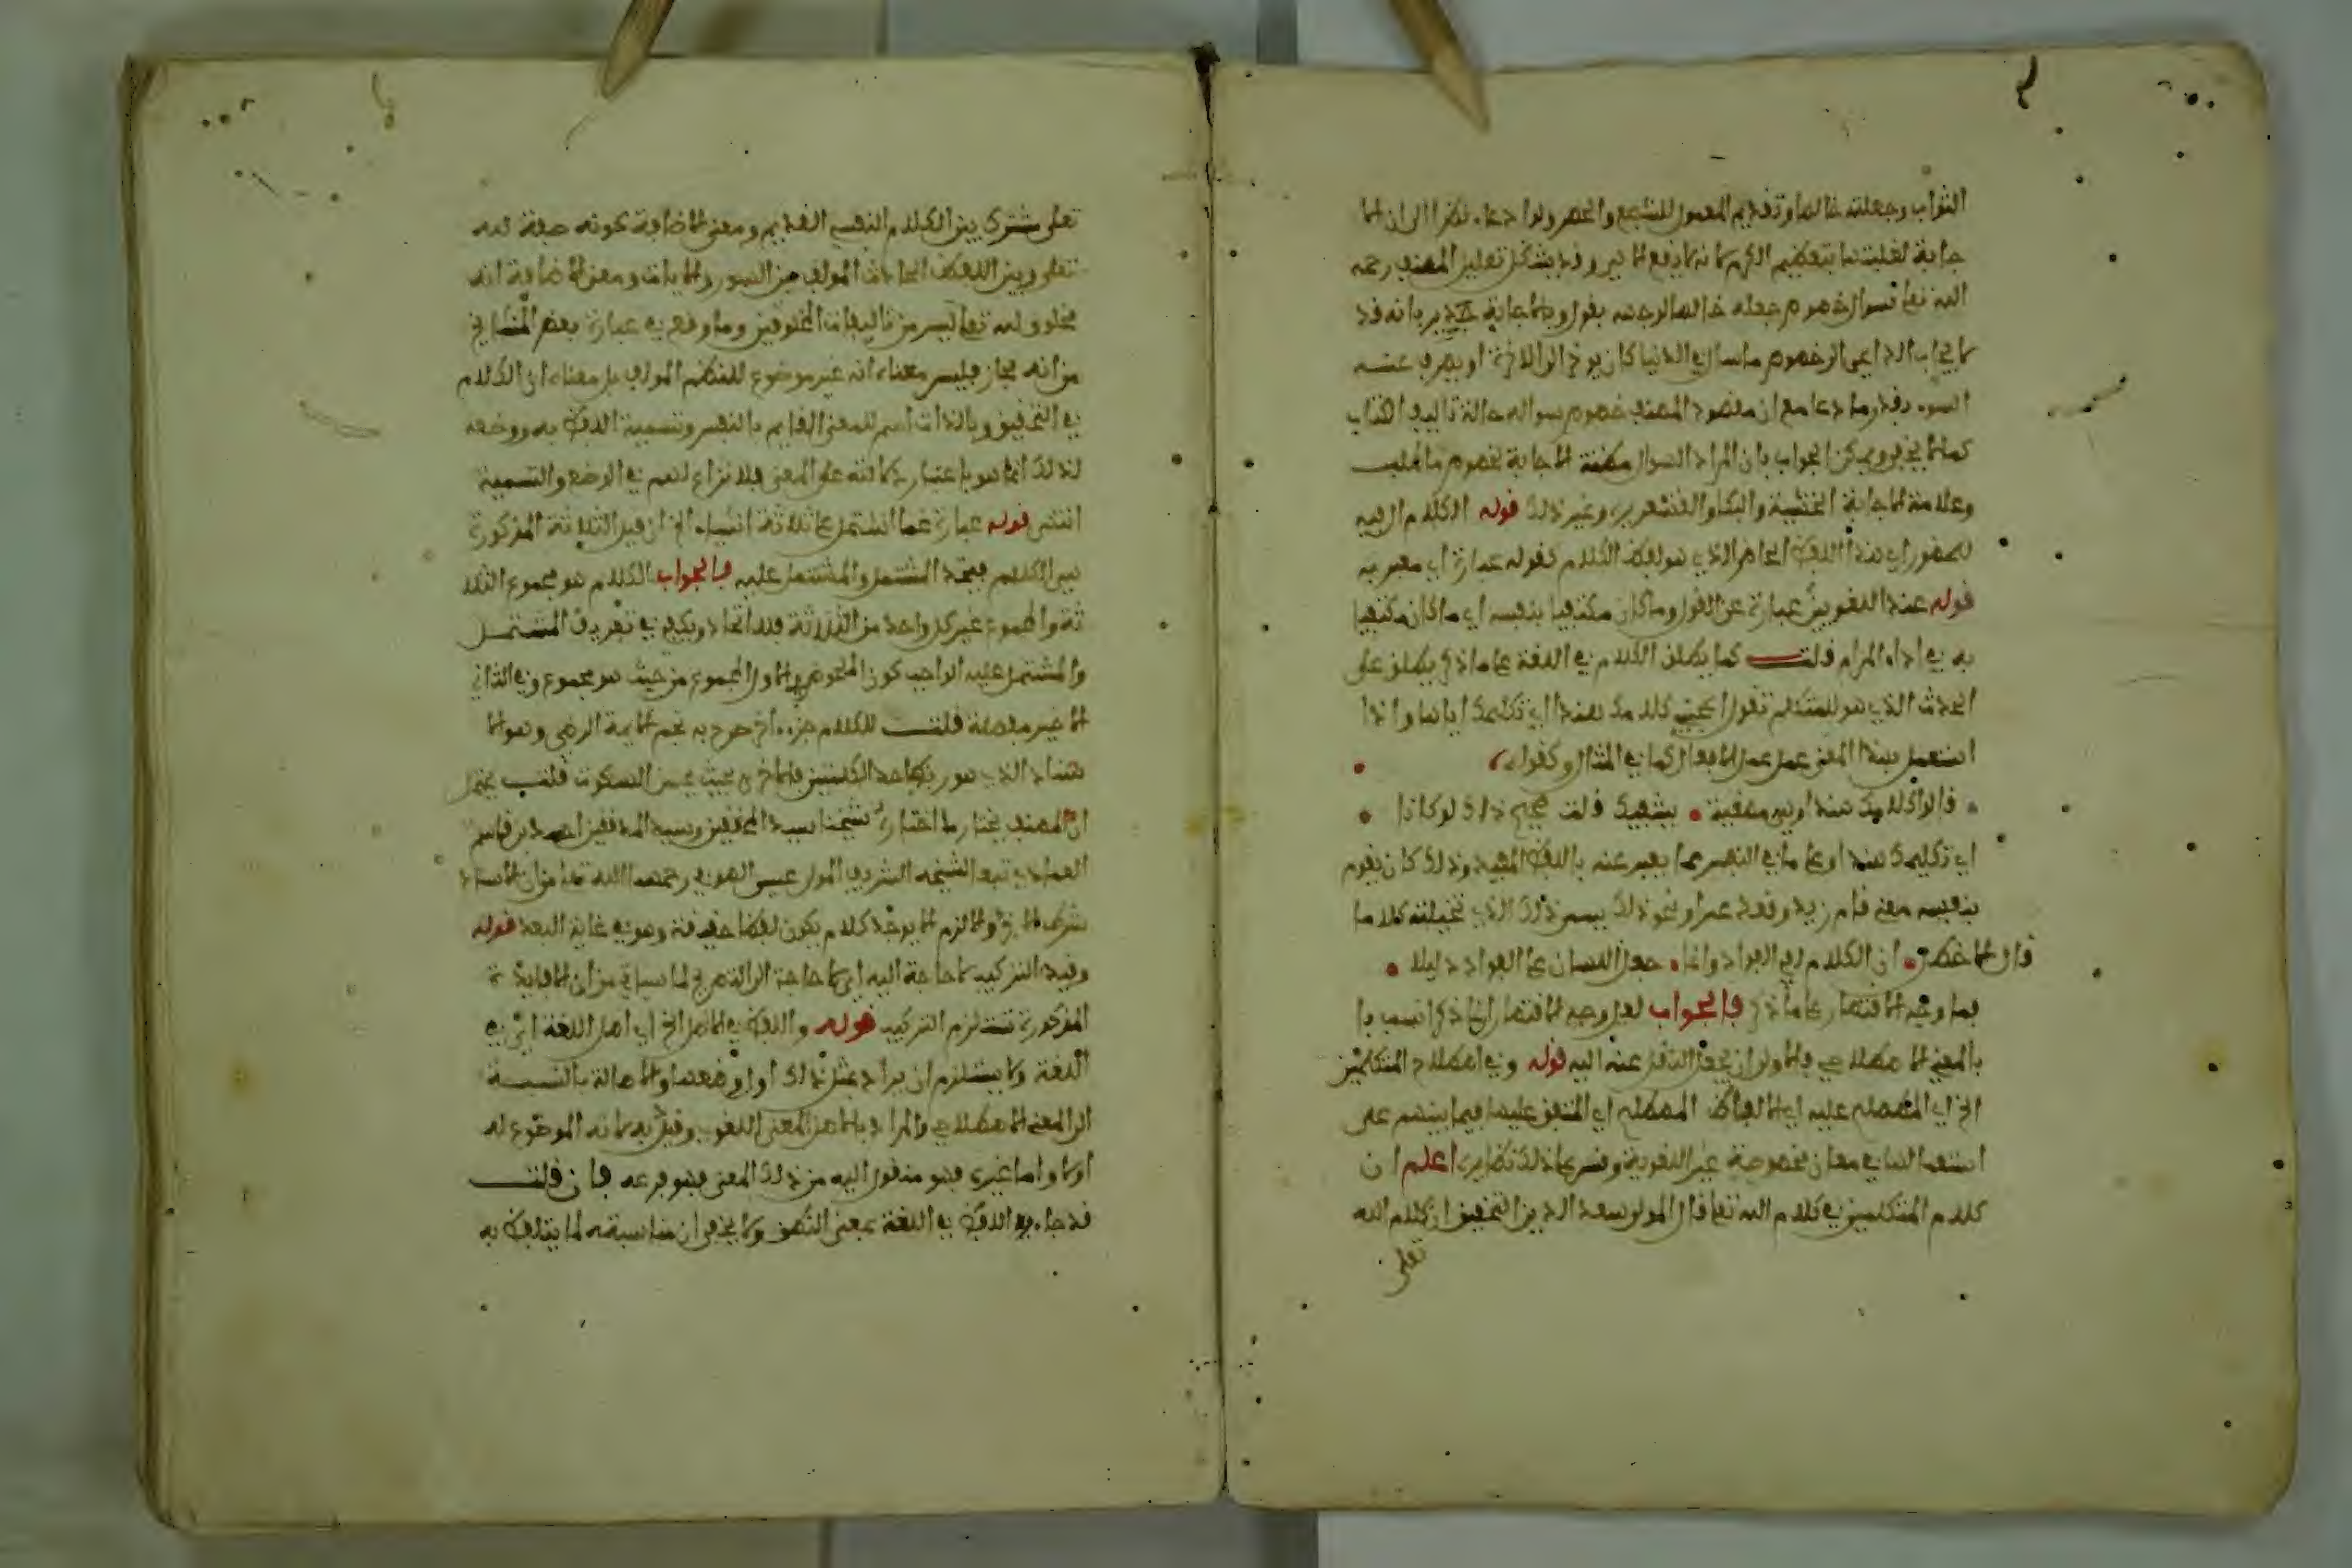 الثواب وجعلته خالصا وتقديم المعمول للسجع والحصر ولو ادعاء نظرا الى ان الا
جابة لغلبتها بتعظيم الكرم كانه لا يقع الا خير وقد يشكل تعليل المصنف رحمه
الله تعا سوال خصوص جعله خالصا لوجهه بقوله وبالاجابة جدير بانه قد
لا يجاب الداعي الى خصوص ما سال في الدنيا كان يوخر الى الاخرة او يصرف عنه
السوء بقدر ما دعا مع ان مقصود المصنف خصوص سواله حالة تاليف الكتاب
كما لا يخفى ويمكن الجواب بان المراد السوال مظنة الاجابة بخصوص ما طلب
وعلامة الاجابة الخشية والبكا والقشعريرة وغير ذلك قوله الكلام ال فيه
للحضور اي هذا اللفظ الحاضر الذي هو لفظ الكلام كقوله عبارة اي معبر به
قوله عند اللغويين عبارة عن القول وما كان مكتفيا بنفسه اي ما كان مكتفيا
به في اداء المرام قلت كما يطلق الكلام في اللغة على ما ذكر يطلق على
الحدث الذي هو للمتكلم تقول اعجبني كلامك هندا اي تكليمك اياها واذا
استعمل بهذا المعنى عمل عمل الافعال كما في المثال وكقوله
قالوا كلامك هندا وهي مصغية يشفيك قلت صحيح ذاك لو كانا
اي تكليمك هندا وعلى ما في النفس مما يعبر عنه باللفظ المفيد وذلك كان يقوم
بنفسه معنى قام زيد وقعد عمرا ونحو ذلك يسمى ذلك الذي تخيلته كلاما
قال الاخطل ان الكلام لفي الفواد وانما جعل اللسان على الفواد دليلا
فما وجه الاقتصار على ما ذكر فالجواب لعل وجه الاقتصار ان ما ذكر انسب با
بالمعنى الاصطلاحي فالاولى ان يجعل النقل عنه اليه قوله وفي اصطلاح المتكلمين
الخ اي المصطلح عليه اي الالفاظ المصطلح اي المتفق عليها فيما بينهم على
استعمالها في معان مخصوصة غير اللغوية وقس على ذلك نظايره اعلم ان
كلام المتكلمين في كلام الله تعا قال المولى سعد الدين التحقيق ان كلام الله
تعلى
تعلى مشترك بين الكلام النفسي القديم ومعنى الاضافية كونه صفة له
تعلى وبين اللفظ الحادث المولف من السور والايات ومعنى الاضافية انه
مخلوق لله تعا ليس من تاليفات المخلوقين وما وقع في عبارة بعض المشايخ
من انه مجاز فليس معناه انه غير موضوع للنظم المولف بل معناه ان الكلام
في التحقيق وبالذات اسم للمعنى القايم بالنفس وتسمية اللفظ به ووضعه
لذلك انما هو باعتبار دلالته على المعنى فلا نزاع لهم في الوضع والتسمية
انتهى قوله عبارة عما اشتمل على ثلاثة اشياء الخ ان قيل الثلاثة المذكورة
هي الكلام فيتحد المشتمل والمشتمل عليه فالجواب الكلام هو مجموع الثلا
ثة والمجموع غير كل واحد من الثلاثة فلا اتحاد ويكفي في تغاير المشتمل
والمشتمل عليه الواجب كون الملحوظ في الاول المجموع من حيث هو مجموع وفي الثاني
الا غير مفصلة قلت للكلام جزء اخر صرح به نجم الايمة الرضى وهو الا
سناد الذي هو ربط احد الكلمتين بالاخرى بحيث يحسن السكوت قلت يحتمل
ان المصنف يختار ما اختاره شيخنا سيد المحققين وسيد المدققين احمد بن قاسم
العبادي تبعا لشيخه الشريف المولى عيسى الصفوي رحمهما الله تعا من ان الاسناد
شرط لا جزء والا لزم الا يوجد كلام يكون لفظا حقيقة وهو في غاية البعد قوله
وقيد التركيب لا حاجة اليه اي لا حاجة الى التصريح لما سياتي من ان الافادة
المذكورة تستلزم التركيب قوله واللفظ في الاصل الخ اي اصل اللغة اي في
اللغة ولا يستلزم ان يراد بمثل ذلك اول وضعها والاصالة بالنسبة
الى المعنى الاصطلاحي والمراد بالاصل المعنى اللغوي وقيل به لانه الموضوع له
اولا واما غيره فهو منقول اليه من ذلك المعنى فهو فرعه فان قلت
قد جاء اللفظ في اللغة بمعنى النطق ولا يخفى ان مناسبته لما يتلفظ به